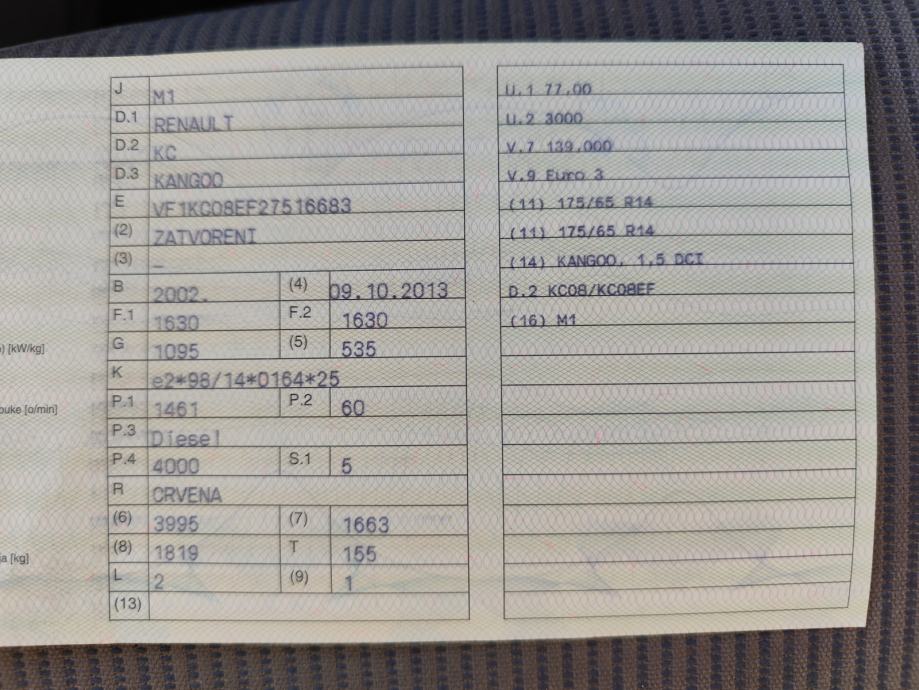 J M1
D.1 RENAULT
D.2 KC
D.3 KANGOO
E VF1KC08EF27516683
(2) ZATVORENI
(3) –
B 2002. (4) 09.10.2013
F.1 1630 F.2 1630
G 1095 (5) 535
K e2*98/14*0164*25
P.1 1461 P.2 60
P.3 Diesel
P.4 4000 S.1 5
R CRVENA
(6) 3995 (7) 1663
(8) 1819 T 155
L 2 (9) 1
(13)
) [kW/kg]
ouke [o/min]
ja [kg]
U.1 77,00
U.2 3000
V.7 139,000
V.9 Euro 3
(11) 175/65 R14
(11) 175/65 R14
(14) KANGOO, 1,5 DCI
D.2 KC08/KC08EF
(16) M1